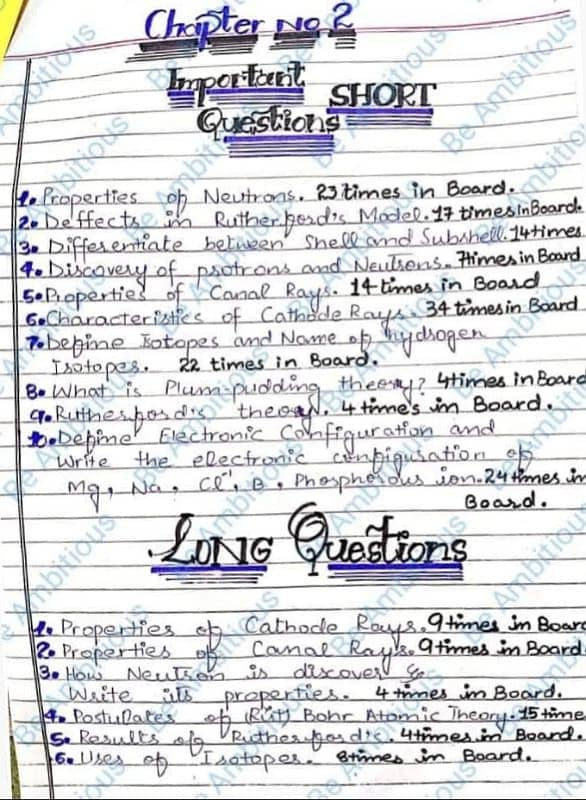 Chapter No. 2
Important SHORT
Questions
1. Properties of Neutrons. 23 times in Board.
2. Deffects in Rutherford's Model. 17 times in Board.
3. Differentiate between Shell and Subshell. 14 times
4. Discovery of protrons and Neutrons. 7 times in Board
5. Properties of Canal Rays. 14 times in Board
6. Characteristics of Cathode Rays. 34 times in Board
7. Define Isotopes and Name of hydrogen
Isotopes. 22 times in Board.
8. What is Plum-pudding theory? 4 times in Board
9. Rutherford's theory. 4 time's in Board.
10. Define Electronic Configuration and
Write the electronic configuration of
Mg, Na, Cl⁻, B, Phosphorous ion. 24 times in
Board.
LONG Questions
1. Properties of Cathode Rays. 9 times in Board
2. Properties of Canal Rays. 9 times in Board
3. How Neutron is discover &
Write its properties. 4 times in Board.
4. Postulates of Bohr Atomic Theory. 15 time
5. Results of Rutherford's. 4 times in Board.
6. Uses of Isotopes. 8 times in Board.
Be Ambitious